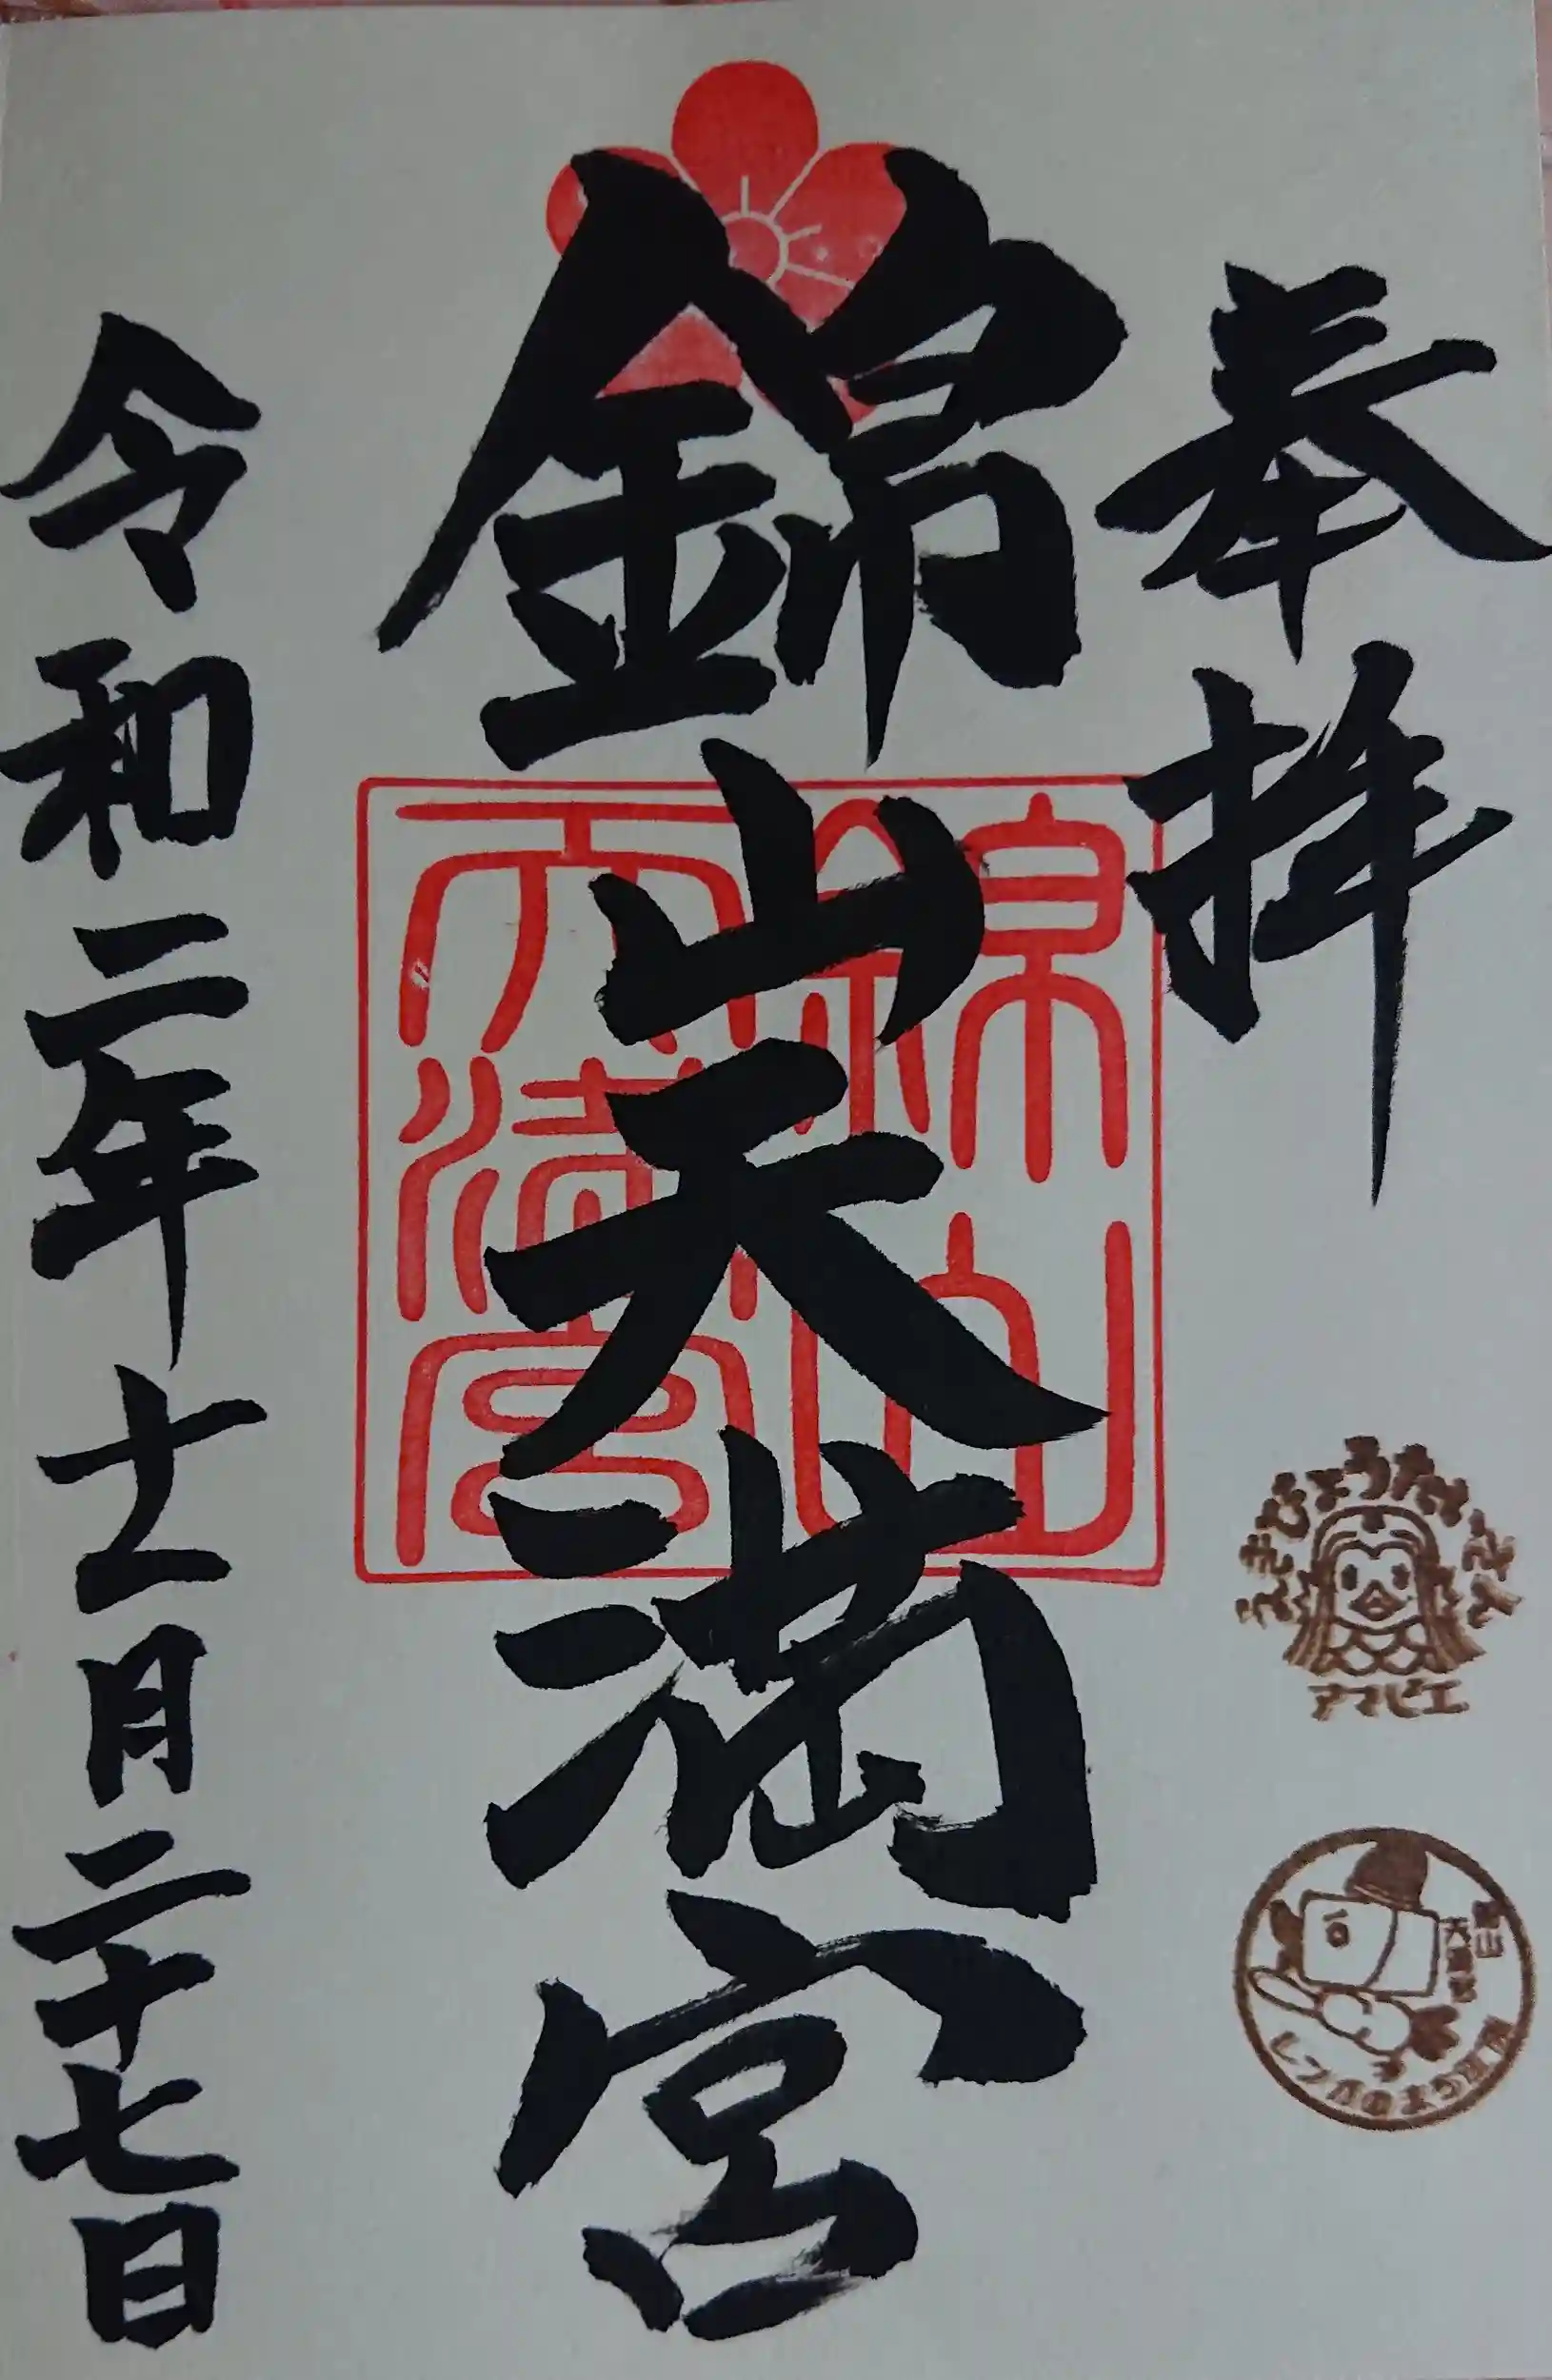 奉拝
えきびょうたいさん
アマビエ
錦山
天満宮
レンガのまち
錦山天満宮
錦山
天満宮
令和二年十一月二十七日